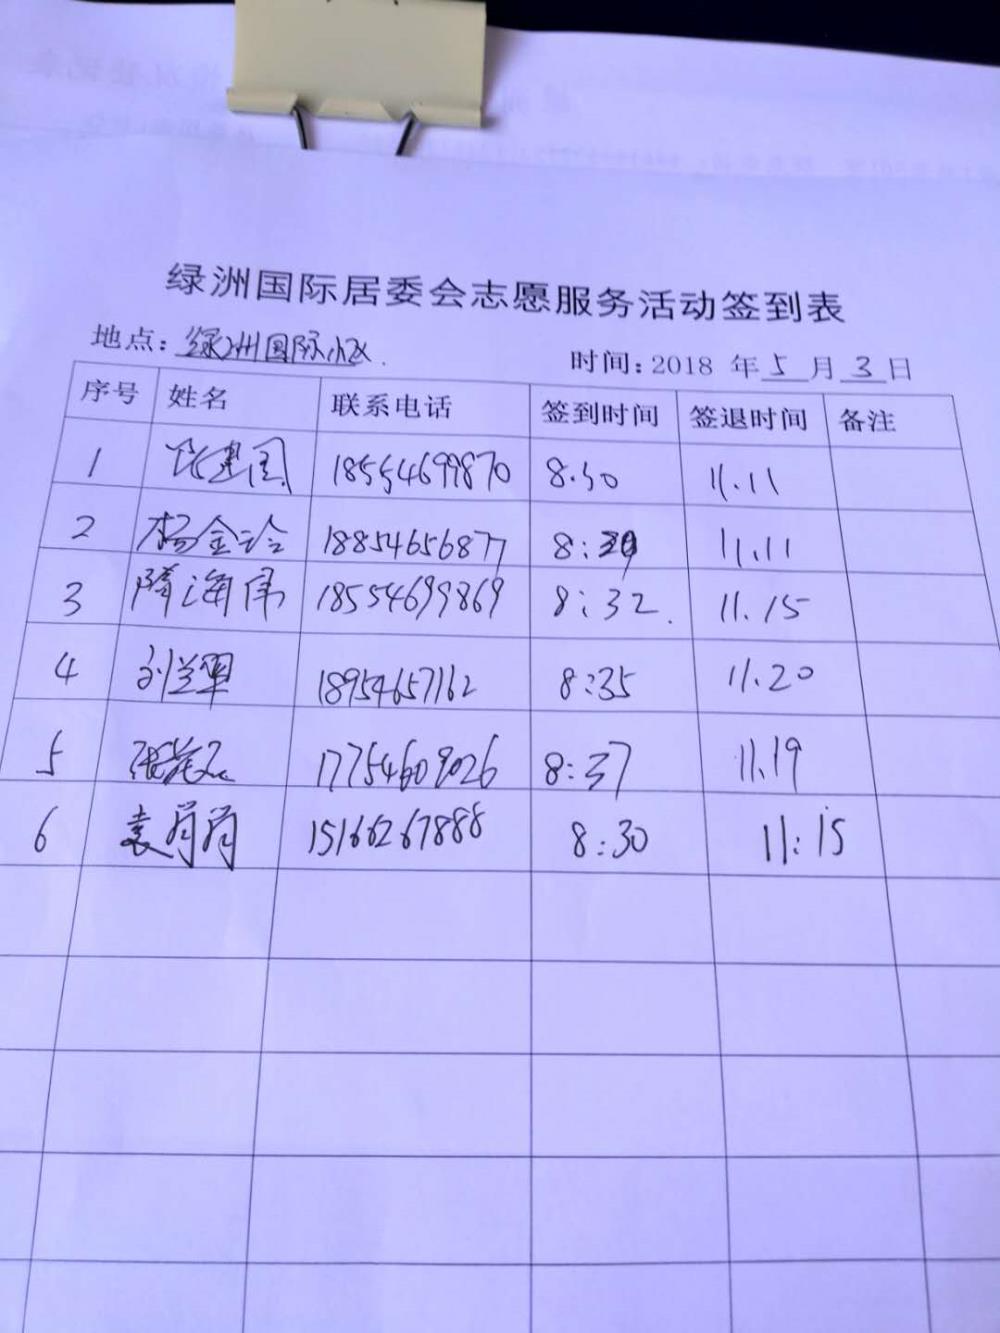 绿洲国际居委会志愿服务活动签到表
地点：绿洲国际小区 时间：2018 年 5 月 3 日
序号 姓名 联系电话 签到时间 签退时间 备注
1 18554699870 8.30 11.11
2 杨金玲 18854656877 8:29 11.11
3 隋海伟 18554699869 8:32 11.15
4 刘兰翠 18954657162 8:35 11.20
5 17754609026 8:37 11.19
6 袁肖肖 15166267888 8:30 11:15